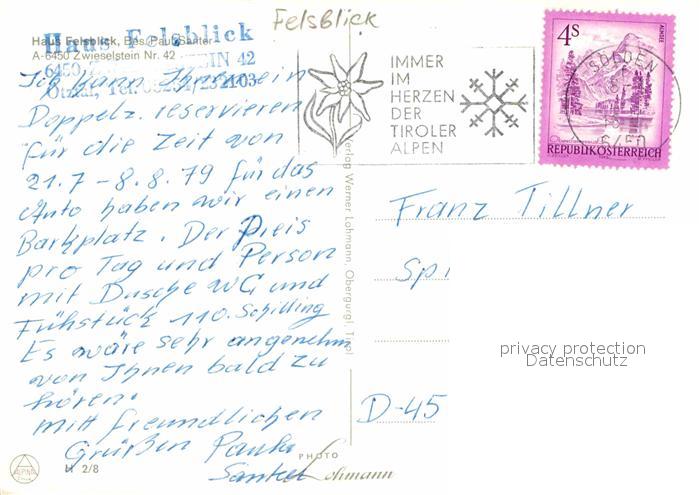 Felsblick
Haus Felsblick
Haus Felsblick, Bes. Paul Santer
A-6450 Zwieselstein Nr. 42
Ich kann Ihnen ein
Doppelz. reservieren
für die Zeit von
21.7 - 8.8.79 für das
Auto haben wir einen
Barkplatz. Der Preis
pro Tag und Person
mit Dusche WC und
Fühstück 110. Schilling
Es wäre sehr angenehm
von Ihnen bald zu
hören.
mitt freundlichen
Grüßen Paula
Santer
ALPINA
H 2/8
PHOTO
Lohmann
Verlag Werner Lohmann, Obergurgl, Tirol
IMMER
IM
HERZEN
DER
TIROLER
ALPEN
SÖLDEN
6450
4S
ALMSEE
REPUBLIK ÖSTERREICH
Franz Tillner
Spi
D-45
privacy protection
Datenschutz